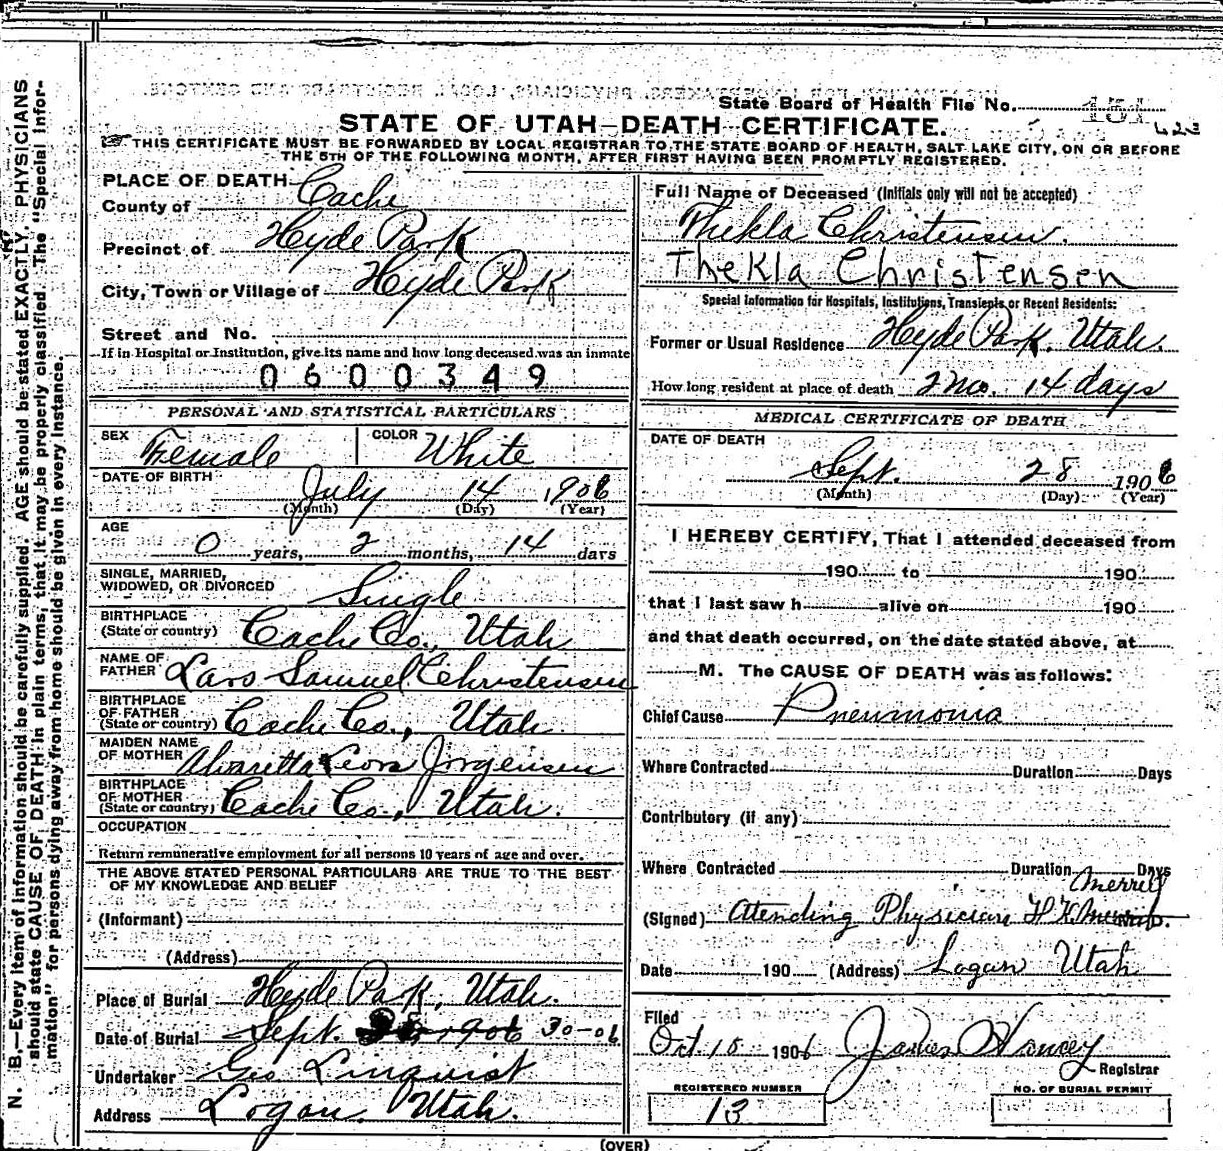 State Board of Health File No. 451
623
STATE OF UTAH—DEATH CERTIFICATE.
THIS CERTIFICATE MUST BE FORWARDED BY LOCAL REGISTRAR TO THE STATE BOARD OF HEALTH, SALT LAKE CITY, ON OR BEFORE
THE 5TH OF THE FOLLOWING MONTH, AFTER FIRST HAVING BEEN PROMPTLY REGISTERED.
PLACE OF DEATH
County of Cache
Precinct of Hyde Park
City, Town or Village of Hyde Park
Street and No.
If in Hospital or Institution, give its name and how long deceased was an inmate
0600349
PERSONAL AND STATISTICAL PARTICULARS
SEX Female COLOR White
DATE OF BIRTH July 14 1906
(Month) (Day) (Year)
AGE
0 years, 2 months, 14 days
SINGLE, MARRIED,
WIDOWED, OR DIVORCED Single
BIRTHPLACE
(State or country) Cache Co., Utah
NAME OF
FATHER Lars Samuel Christensen
BIRTHPLACE
OF FATHER
(State or country) Cache Co., Utah
MAIDEN NAME
OF MOTHER Alvaretta Leora Jorgensen
BIRTHPLACE
OF MOTHER
(State or country) Cache Co., Utah.
OCCUPATION
Return remunerative employment for all persons 10 years of age and over.
THE ABOVE STATED PERSONAL PARTICULARS ARE TRUE TO THE BEST
OF MY KNOWLEDGE AND BELIEF
(Informant)
(Address)
Place of Burial Hyde Park, Utah.
Date of Burial Sept. 1906 30-06
Undertaker Geo. Linquist
Address Logan, Utah.
Full Name of Deceased (Initials only will not be accepted)
Thekla Christensen.
Thekla Christensen
Special Information for Hospitals, Institutions, Transients or Recent Residents:
Former or Usual Residence Hyde Park, Utah.
How long resident at place of death 2 mo. 14 days
MEDICAL CERTIFICATE OF DEATH
DATE OF DEATH
Sept. 28 1906
(Month) (Day) (Year)
I HEREBY CERTIFY, That I attended deceased from
190 to 190
that I last saw h alive on 190
and that death occurred, on the date stated above, at
M. The CAUSE OF DEATH was as follows:
Chief Cause Pneumonia
Where Contracted Duration Days
Contributory (if any)
Where Contracted Duration Days
Merrill
(Signed) Atending Physician H. K. Merrill.
Date 190 (Address) Logan Utah
Filed
Oct 10 1906 James Hancey
Registrar
REGISTERED NUMBER
13
NO. OF BURIAL PERMIT
(OVER)
N. B.—Every item of information should be carefully supplied. AGE should be stated EXACTLY. PHYSICIANS
should state CAUSE OF DEATH in plain terms, that it may be properly classified. The "Special Infor-
mation" for persons dying away from home should be given in every instance.